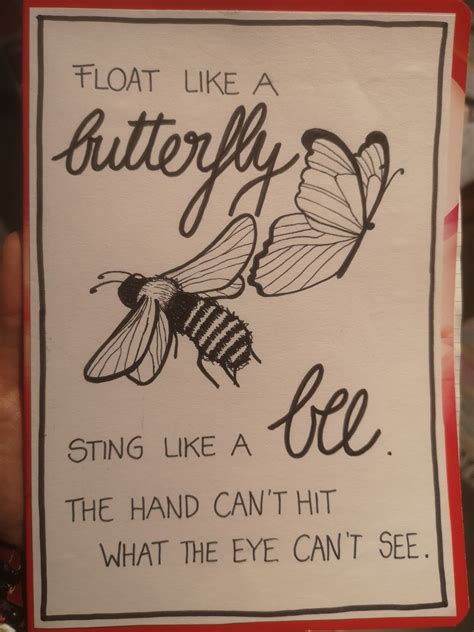 FLOAT LIKE A
butterfly
STING LIKE A bee.
THE HAND CAN'T HIT
WHAT THE EYE CAN'T SEE.